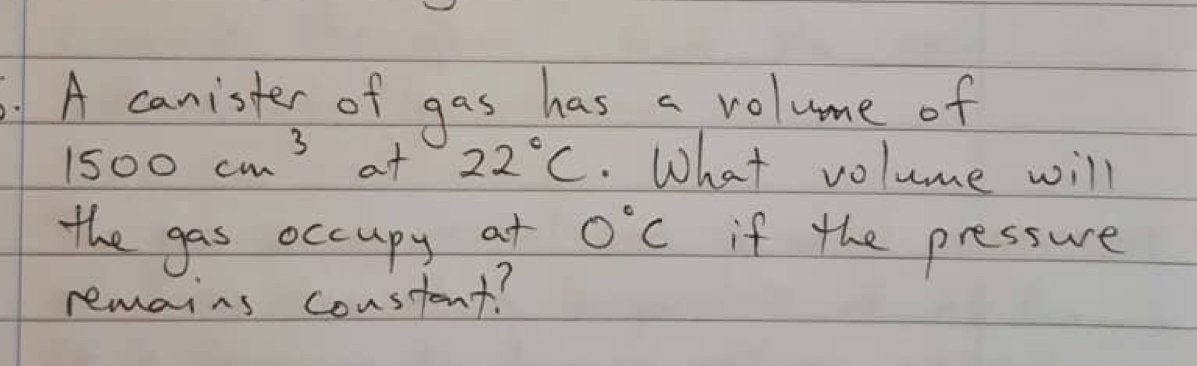 5. A canister of gas has a volume of
1500 cm³ at 22°C. What volume will
the gas occupy at 0°C if the pressure
remains constant?